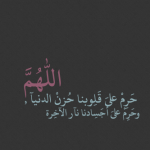 اللهُمَّ
حَرِمْ علىٰ قَلوبنا حُزنْ الدنيآ ،
وحَرِمْ علىٰ أجسادنا نآر الآخِرة